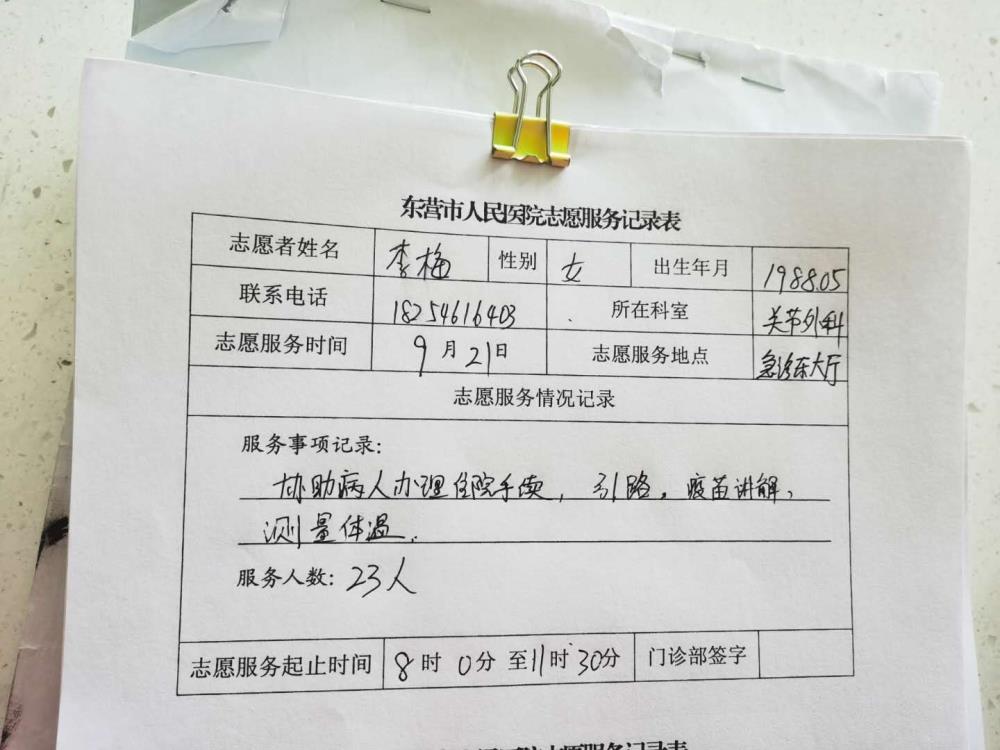 东营市人民医院志愿服务记录表
志愿者姓名 李梅 性别 女 出生年月 1988.05
联系电话 18254616403 所在科室 关节外科
志愿服务时间 9月21日 志愿服务地点 急诊东大厅
志愿服务情况记录
服务事项记录:
协助病人办理住院手续，引路，疫苗讲解，
测量体温.
服务人数: 23人
志愿服务起止时间 8时0分至11时30分 门诊部签字
医院志愿服务记录表